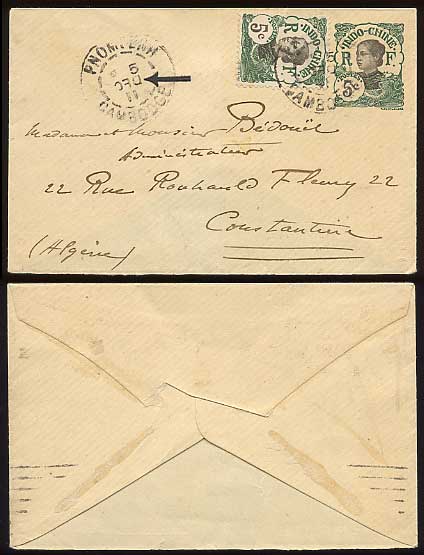 PNOMPENH
5
DEC
11
CAMBODGE
5c
INDO-CHINE
R F
INDO-CHINE
R F
5c
CAMBODGE
Madame et Monsieur Bédouël
Administrateur
22 Rue Rouhauld Fleury 22
Constantine
(Algérie)